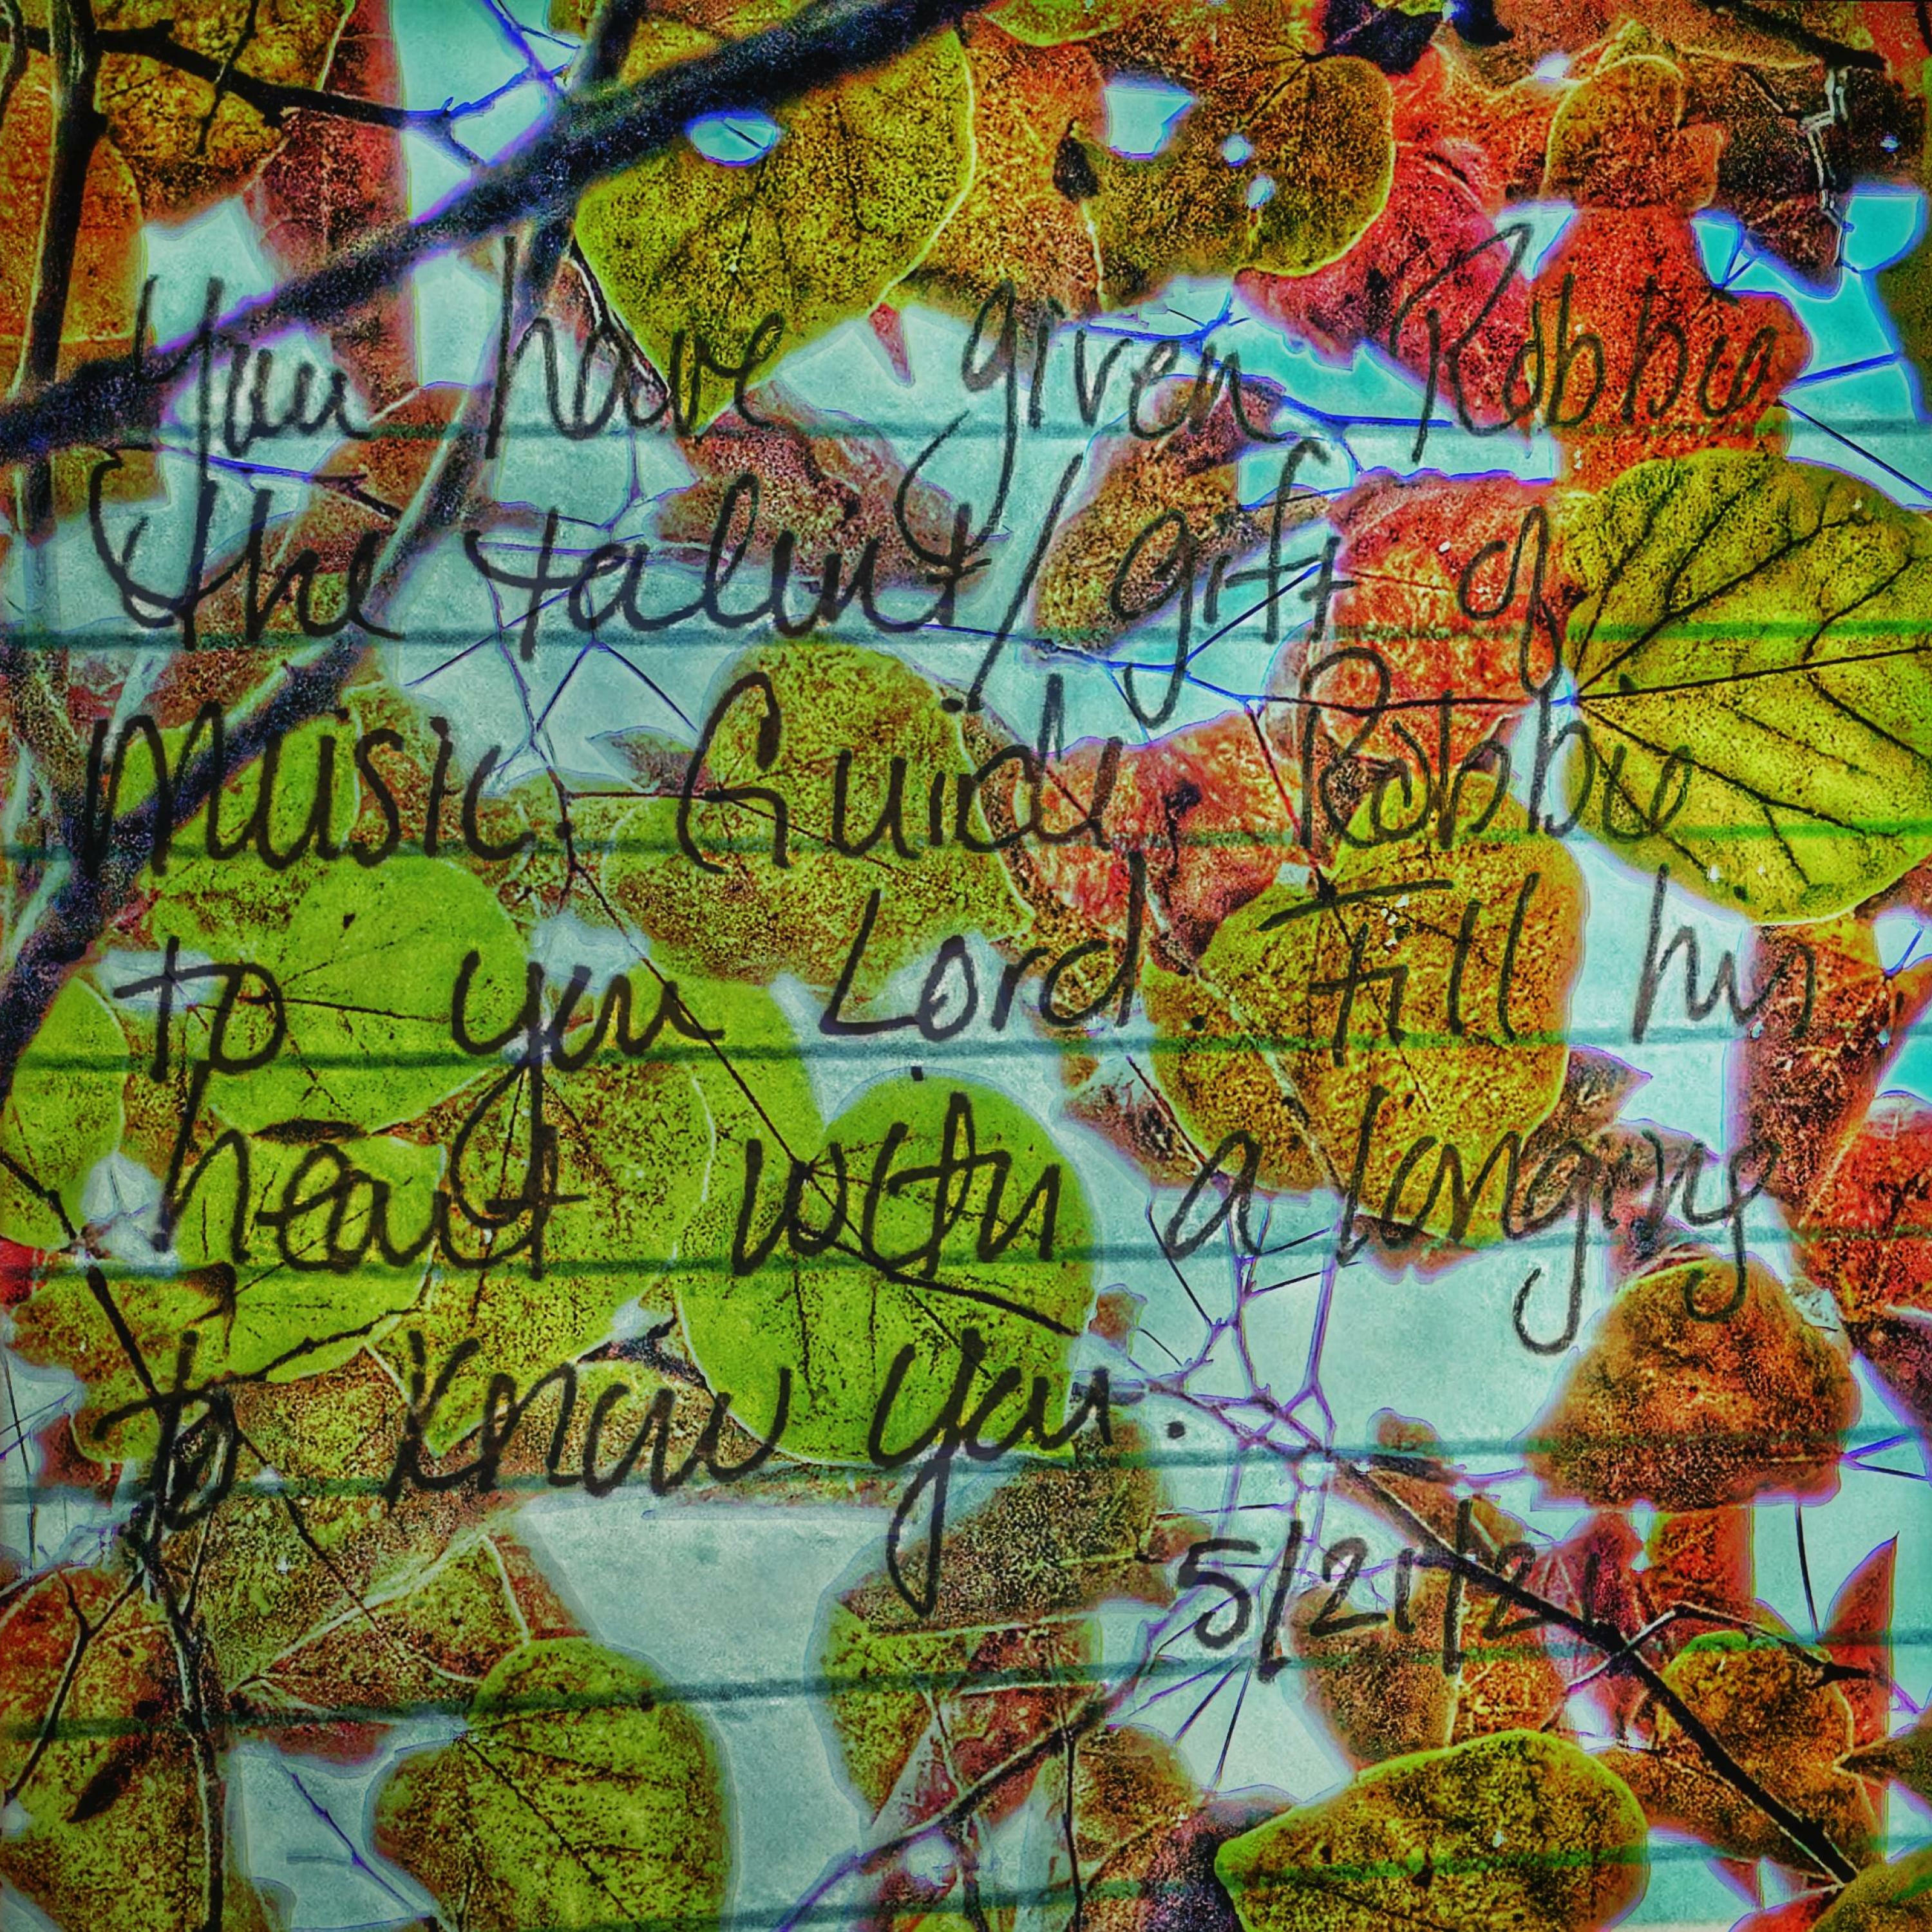 You have given Robbie
the talent/gift of
music. Guide, Robbie
to you Lord. Fill his
heart with a longing
to know you.
5/21/21